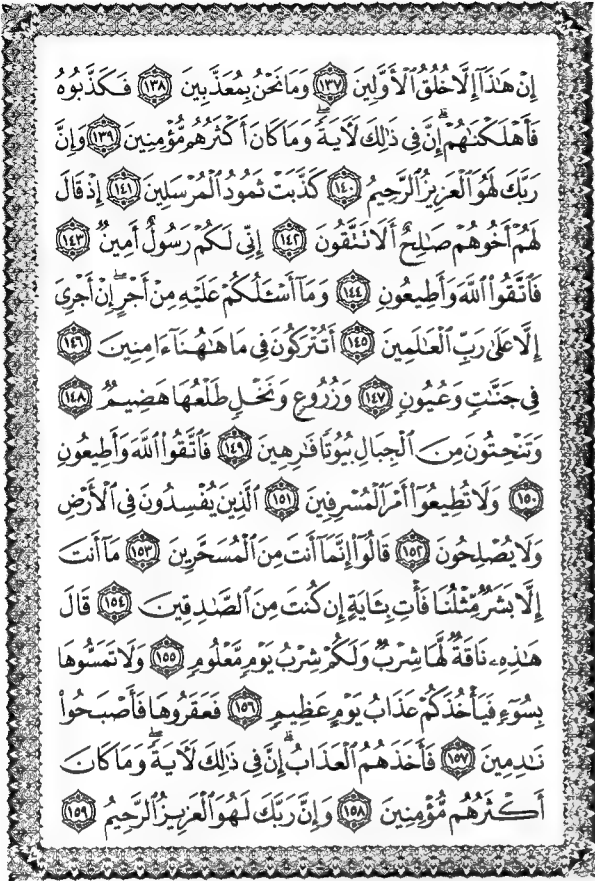 إِنْ هَٰذَآ إِلَّا خُلُقُ ٱلْأَوَّلِينَ ١٣٧ وَمَا نَحْنُ بِمُعَذَّبِينَ ١٣٨ فَكَذَّبُوهُ
فَأَهْلَكْنَٰهُمْ ۗ إِنَّ فِى ذَٰلِكَ لَءَايَةً ۖ وَمَا كَانَ أَكْثَرُهُم مُّؤْمِنِينَ ١٣٩ وَإِنَّ
رَبَّكَ لَهُوَ ٱلْعَزِيزُ ٱلرَّحِيمُ ١٤٠ كَذَّبَتْ ثَمُودُ ٱلْمُرْسَلِينَ ١٤١ إِذْ قَالَ
لَهُمْ أَخُوهُمْ صَٰلِحٌ أَلَا تَتَّقُونَ ١٤٢ إِنِّى لَكُمْ رَسُولٌ أَمِينٌ ١٤٣
فَٱتَّقُوا۟ ٱللَّهَ وَأَطِيعُونِ ١٤٤ وَمَآ أَسْـَٔلُكُمْ عَلَيْهِ مِنْ أَجْرٍ ۖ إِنْ أَجْرِىَ
إِلَّا عَلَىٰ رَبِّ ٱلْعَٰلَمِينَ ١٤٥ أَتُتْرَكُونَ فِى مَا هَٰهُنَآ ءَامِنِينَ ١٤٦
فِى جَنَّٰتٍ وَعُيُونٍ ١٤٧ وَزُرُوعٍ وَنَخْلٍ طَلْعُهَا هَضِيمٌ ١٤٨
وَتَنْحِتُونَ مِنَ ٱلْجِبَالِ بُيُوتًا فَٰرِهِينَ ١٤٩ فَٱتَّقُوا۟ ٱللَّهَ وَأَطِيعُونِ
١٥٠ وَلَا تُطِيعُوٓا۟ أَمْرَ ٱلْمُسْرِفِينَ ١٥١ ٱلَّذِينَ يُفْسِدُونَ فِى ٱلْأَرْضِ
وَلَا يُصْلِحُونَ ١٥٢ قَالُوٓا۟ إِنَّمَآ أَنتَ مِنَ ٱلْمُسَحَّرِينَ ١٥٣ مَآ أَنتَ
إِلَّا بَشَرٌ مِّثْلُنَا فَأْتِ بِـَٔايَةٍ إِن كُنتَ مِنَ ٱلصَّٰدِقِينَ ١٥٤ قَالَ
هَٰذِهِۦ نَاقَةٌ لَّهَا شِرْبٌ وَلَكُمْ شِرْبُ يَوْمٍ مَّعْلُومٍ ١٥٥ وَلَا تَمَسُّوهَا
بِسُوٓءٍ فَيَأْخُذَكُمْ عَذَابُ يَوْمٍ عَظِيمٍ ١٥٦ فَعَقَرُوهَا فَأَصْبَحُوا۟
نَٰدِمِينَ ١٥٧ فَأَخَذَهُمُ ٱلْعَذَابُ ۗ إِنَّ فِى ذَٰلِكَ لَءَايَةً ۖ وَمَا كَانَ
أَكْثَرُهُم مُّؤْمِنِينَ ١٥٨ وَإِنَّ رَبَّكَ لَهُوَ ٱلْعَزِيزُ ٱلرَّحِيمُ ١٥٩